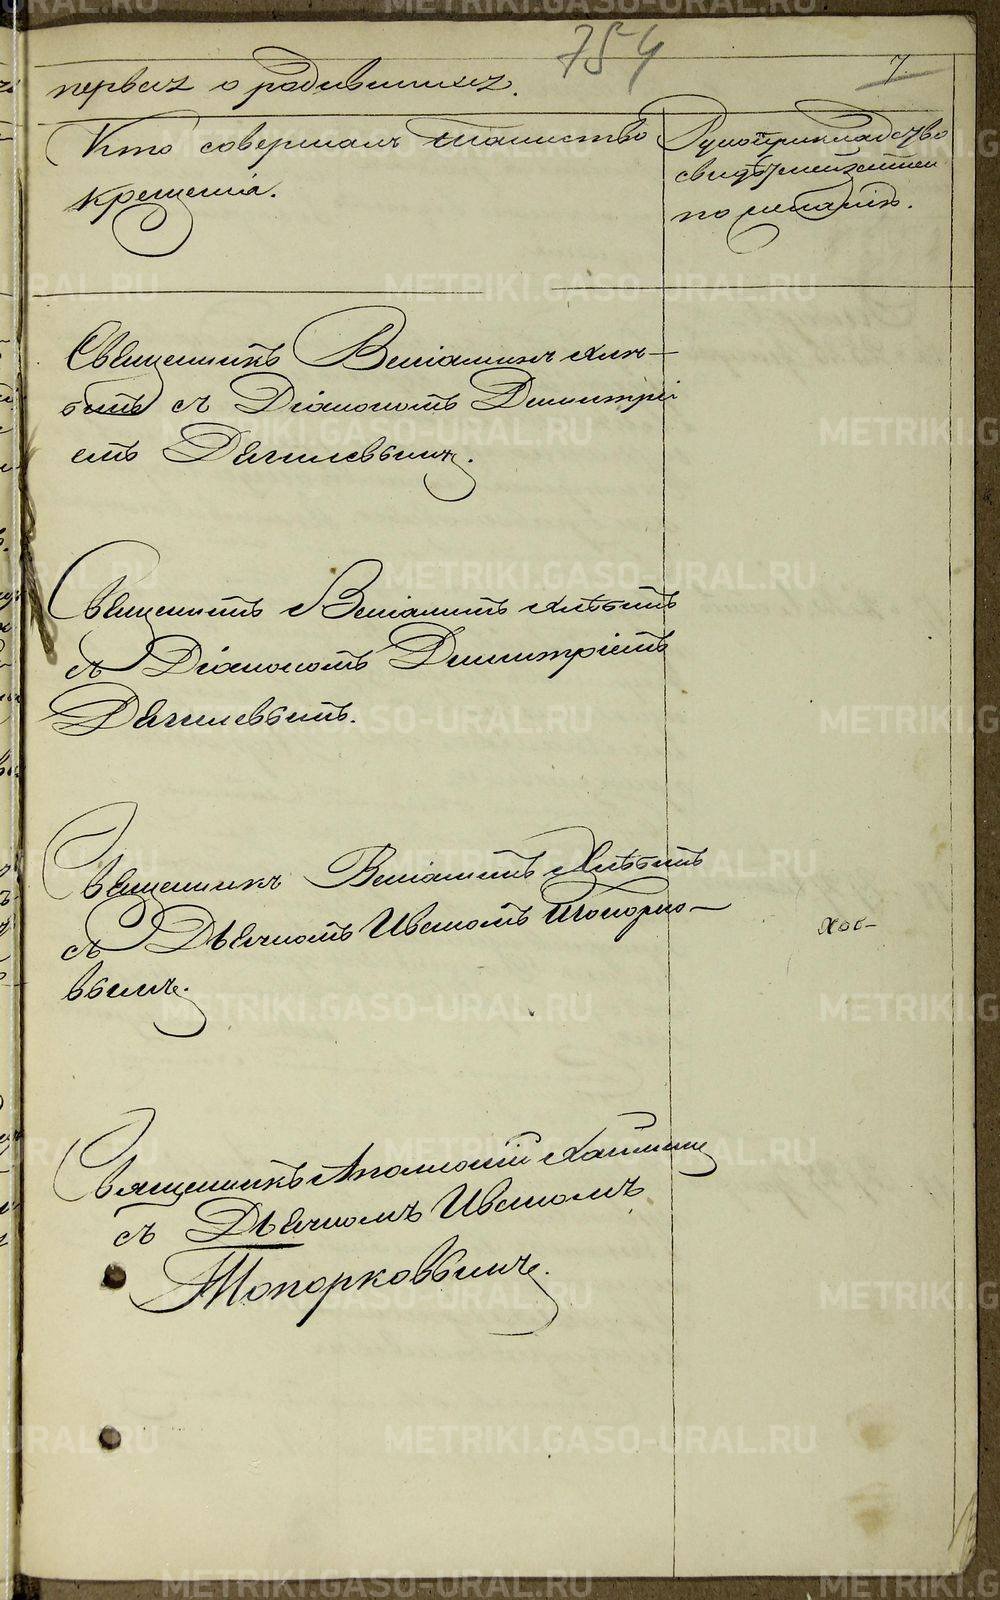 754
7.
первая о родившихся.
Кто совершалъ таинство
крещенія.
Рукоприкладство
свидѣтелей записи
по желанію.
Священникъ Веніаминъ Хлѣ-
бинъ съ Діакономъ Димитрі
емъ Дягилевымъ.
Священникъ Веніаминъ Хлѣбинъ
съ Діакономъ Димитріемъ
Дягилевымъ.
Священникъ Веніаминъ Хлѣбинъ
съ Дьячкомъ Иваномъ Топорко-
вымъ.
Священникъ Аполлоній
съ Дьячкомъ Иваномъ
Топорковымъ.
METRIKI.GASO-URAL.RU